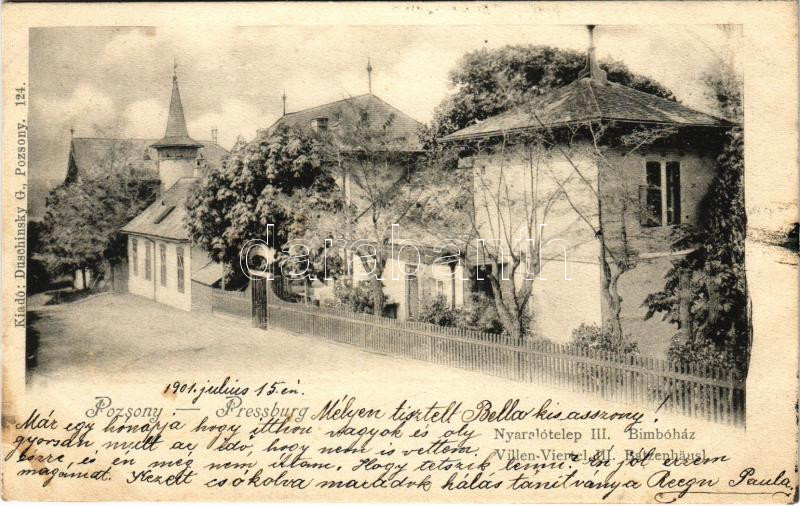 Kiadó: Duschinsky G., Pozsony. 124.
darabanth.com
1901. július 15.én
Pozsony — Pressburg
Mélyen tisztelt Bella kisasszony!
Nyaralótelep III. Bimbóház
Villen-Viertel III. Batzenhäusl
Már egy hónapja hogy itthon vagyok és oly
gyorsan mult az idő, hogy nem is vettem
észre, és én még nem írtam. Hogy tetszik lenni? Én jól érzem
magamat. Kezeit csókolva maradok hálás tanítványa Reegn Paula.